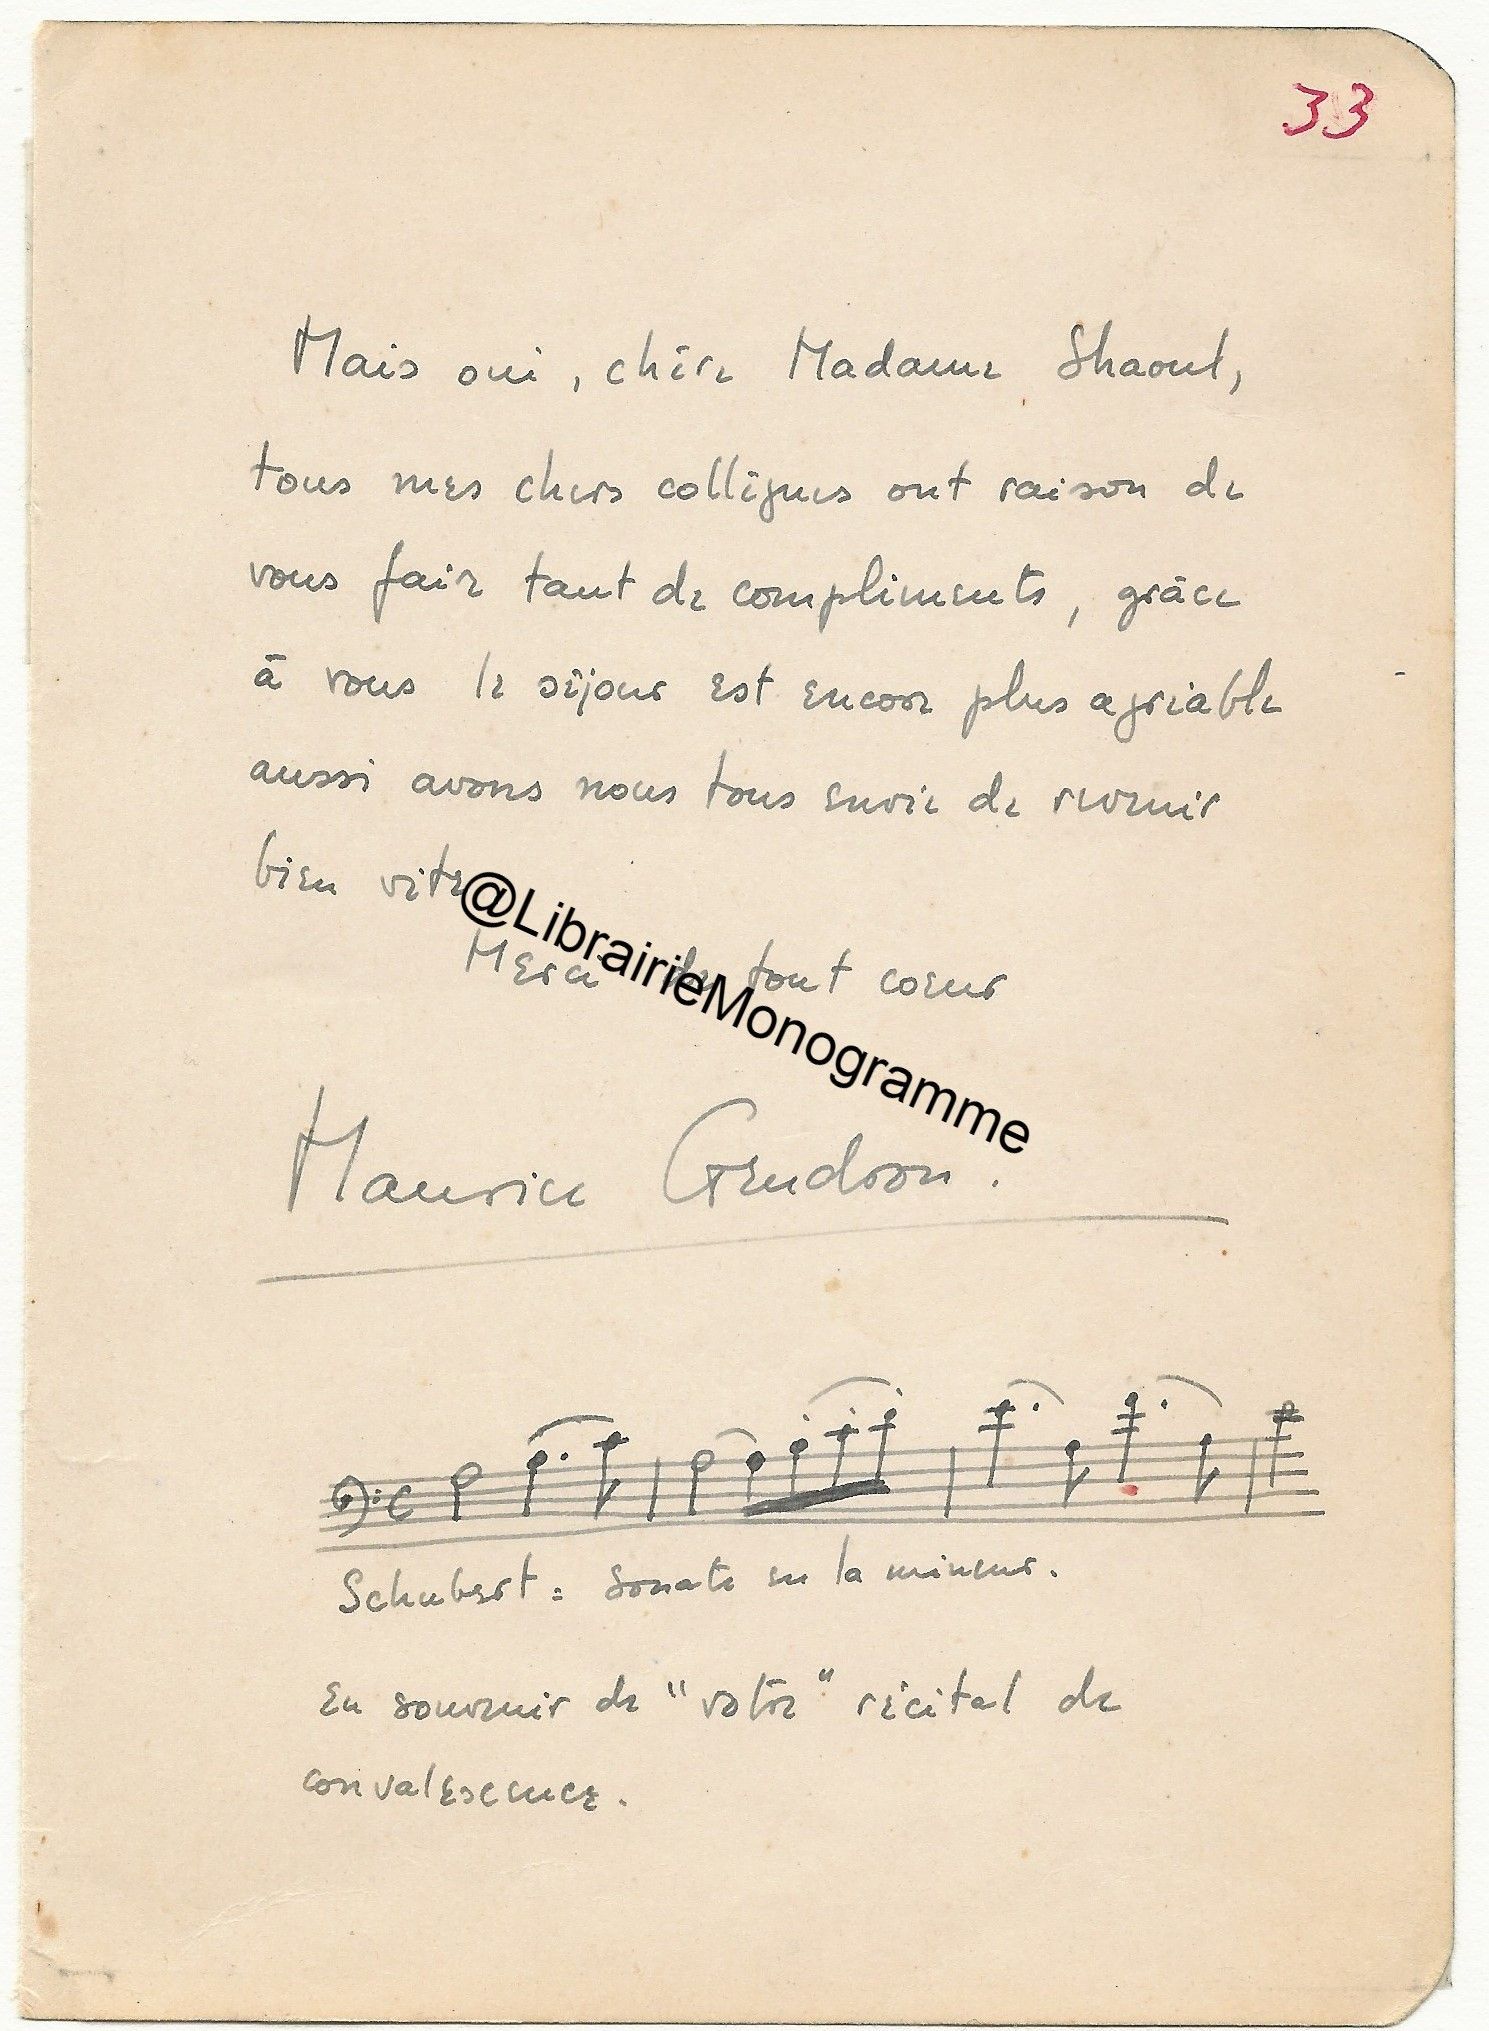 33
Mais oui, chère Madame Shaoul,
tous mes chers collègues ont raison de
vous faire tant de compliments, grâce
à vous le séjour est encore plus agréable
aussi avons nous tous envie de revenir
bien vite
@LibrairieMonogramme
Merci de tout coeur
Maurice Gendron.
Schubert = Sonate en la mineur.
En souvenir de "votre" récital de
convalescence.